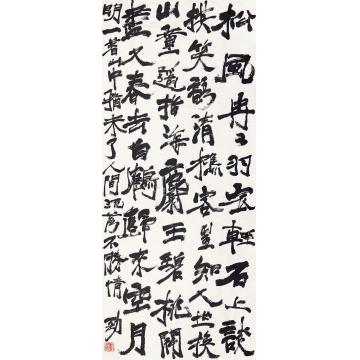 松風冉〻羽衣輕石上談
棋笑語清樵客豈知人世換
山童遙指海塵生碧桃開
盡又春去白鶴歸來空月
明一着山中猶未了人間不勝情